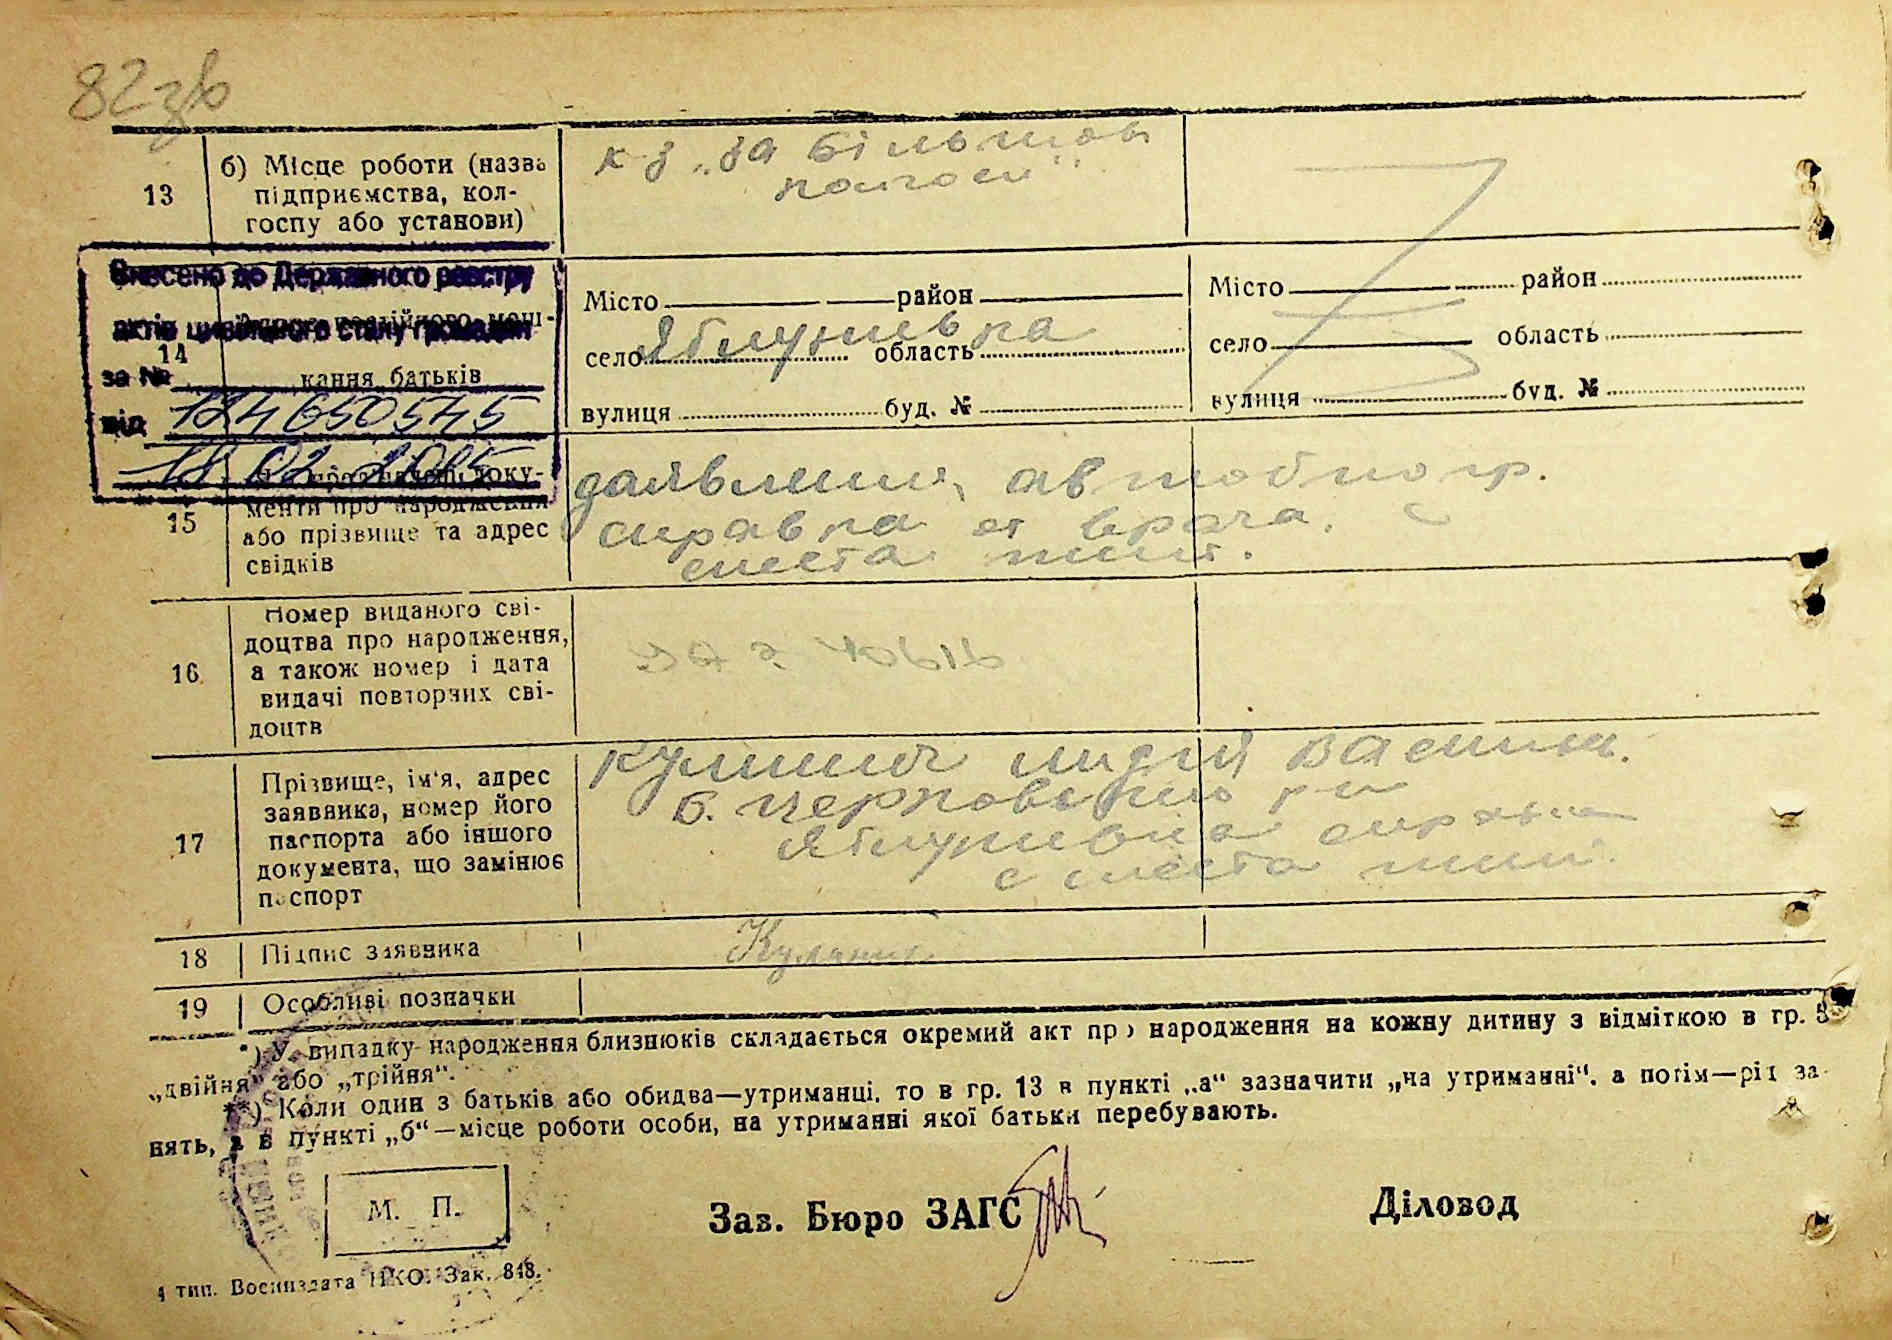 82зв
13
б) Місце роботи (назва
підприємства, кол-
госпу або установи)
к-з „За більшов
колгосп"
Внесено до Державного реєстру
актів цивільного стану громадян
14
за №
кання батьків
від 124650545
18 02 2015
Місто район
село Яблунівка область
вулиця буд. №
Місто район
село область
вулиця буд. №
15
менти про народження
або прізвище та адрес
свідків
заявления, автобиогр.
справка от врача. с
места жит.
16
Номер виданого сві-
доцтва про народження,
а також номер і дата
видачі повторних сві-
доцтв
17
Прізвище, ім'я, адрес
заявника, номер його
паспорта або іншого
документа, що замінює
паспорт
Василь.
Яблунівка справка
с места жит.
18
Підпис заявника
19
Особливі позначки
*) У випадку народження близнюків складається окремий акт про народження на кожну дитину з відміткою в гр. 5
„двійня" або „трійня".
**) Коли один з батьків або обидва—утриманці, то в гр. 13 в пункті „а" зазначити „на утриманні", а потім—рід за
нять, а в пункті „б"—місце роботи особи, на утриманні якої батьки перебувають.
М. П.
Зав. Бюро ЗАГС
Діловод
4 тип. Воениздата НКО. Зак. 848.